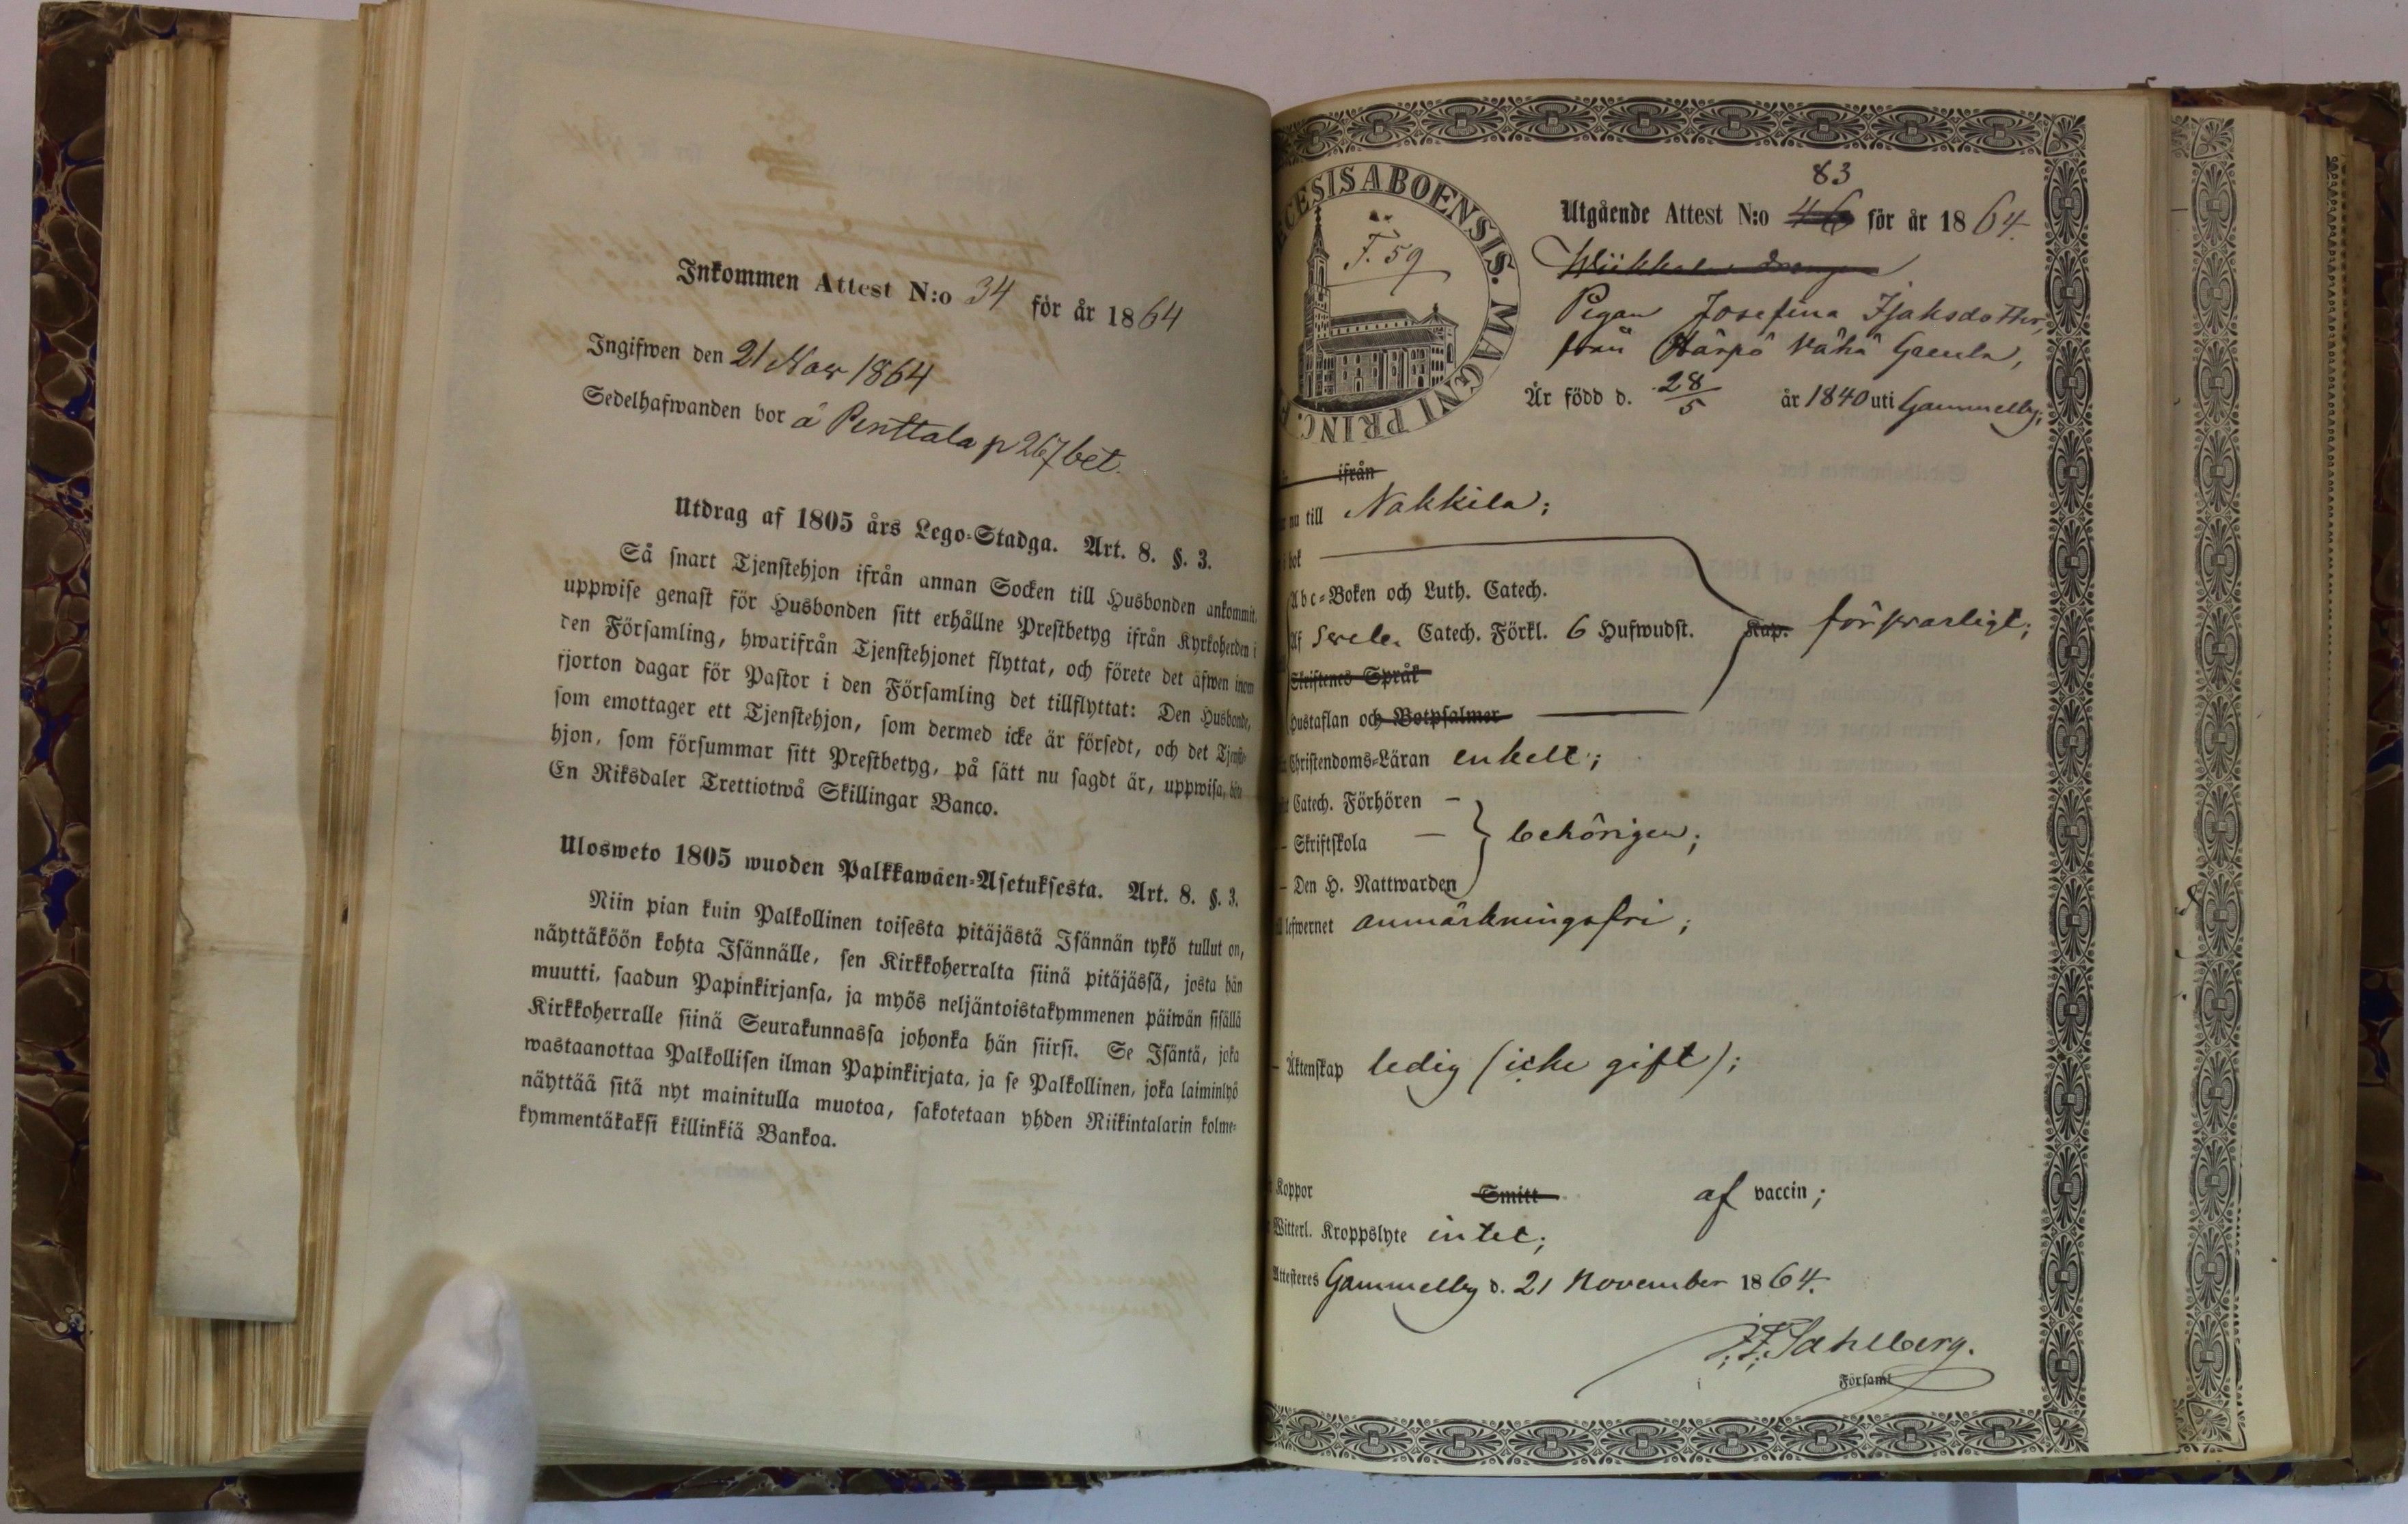 Inkommen Attest N:o 34 för år 1864
Ingifwen den 21 Nov 1864
Sedelhafwanden bor å Penttala p 267 bet.
Utdrag af 1805 års Lego-Stadga. Art. 8. §. 3.
Så snart Tjenstehjon ifrån annan Socken till Husbonden ankommit,
uppwise genast för Husbonden sitt erhållne Prestbetyg ifrån Kyrkoherden i
den Församling, hwarifrån Tjenstehjonet flyttat, och förete det äfwen inom
fjorton dagar för Pastor i den Församling det tillflyttat: Den Husbonde,
som emottager ett Tjenstehjon, som dermed icke är försedt, och det Tjenste-
hjon, som försummar sitt Prestbetyg, på sätt nu sagdt är, uppwisa, böte
En Riksdaler Trettiotwå Skillingar Banco.
Ulosweto 1805 wuoden Palkkawäen-Asetuksesta. Art. 8. §. 3.
Niin pian kuin Palkollinen toisesta pitäjästä Isännän tykö tullut on,
näyttäköön kohta Isännälle, sen Kirkkoherralta siinä pitäjässä, josta hän
muutti, saadun Papinkirjansa, ja myös neljäntoistakymmenen päiwän sisällä
Kirkkoherralle siinä Seurakunnassa johonka hän siirsi. Se Isäntä, joka
wastaanottaa Palkollisen ilman Papinkirjata, ja se Palkollinen, joka laiminlyö
näyttää sitä nyt mainitulla muotoa, sakotetaan yhden Riikintalarin kolme-
kymmentäkaksi killinkiä Bankoa.
ECESIS ABOENSIS. MAGNI PRINC.
F. 59
83
Utgående Attest N:o 46 för år 1864.
Pigan Josefina Isaksdotter,
från Härpö Vähä Gamla,
Är född d. 28/5 år 1840 uti Gammelby;
ifrån
nu till Nakkila;
bok
Abc-Boken och Luth. Catech.
Af Sveb. Catech. Förkl. 6 Hufwudst. Kap. försvarligt;
Skriftenes Språk
Hustaflan och Botpsalmer
Christendoms-Läran enkelt;
Catech. Förhören –
– Skriftskola – behörigen;
– Den H. Nattwarden
lefwernet anmärkningsfri;
– Äktenskap ledig (icke gift);
Koppor Smitt af vaccin;
Witterl. Kroppslyte intet;
Attesteres Gammelby d. 21 November 1864.
J. F. Sahlberg.
i Församl